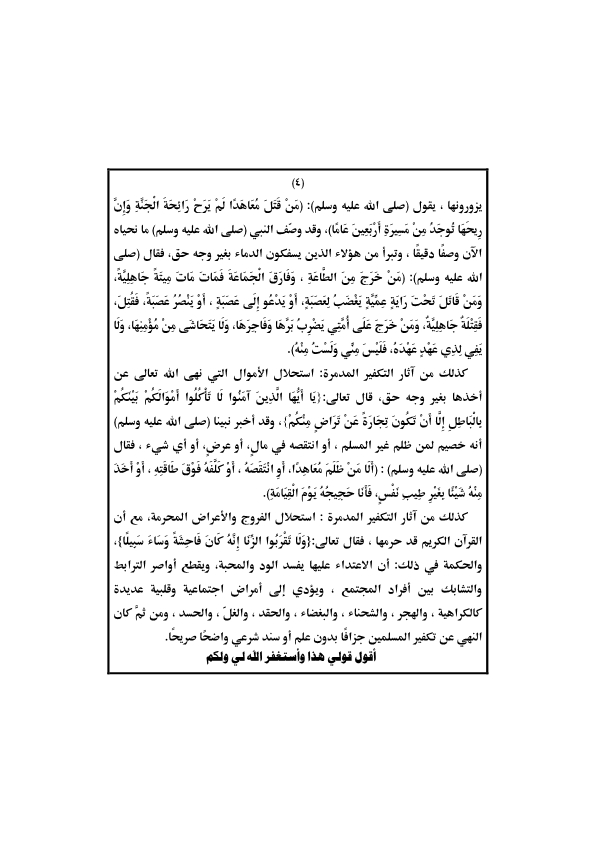 (٤)
يزورونها ، يقول (صلى الله عليه وسلم): (مَنْ قَتَلَ مُعَاهَدًا لَمْ يَرَحْ رَائِحَةَ الْجَنَّةِ وَإِنَّ
رِيحَهَا تُوجَدُ مِنْ مَسِيرَةِ أَرْبَعِينَ عَامًا)، وقد وصّف النبي (صلى الله عليه وسلم) ما نحياه
الآن وصفًا دقيقًا ، وتبرأ من هؤلاء الذين يسفكون الدماء بغير وجه حق، فقال (صلى
الله عليه وسلم): (مَنْ خَرَجَ مِنَ الطَّاعَةِ ، وَفَارَقَ الْجَمَاعَةَ فَمَاتَ مَاتَ مِيتَةً جَاهِلِيَّةً،
وَمَنْ قَاتَلَ تَحْتَ رَايَةٍ عِمِّيَّةٍ يَغْضَبُ لِعَصَبَةٍ، أَوْ يَدْعُو إِلَى عَصَبَةٍ ، أَوْ يَنْصُرُ عَصَبَةً، فَقُتِلَ،
فَقِتْلَةٌ جَاهِلِيَّةٌ، وَمَنْ خَرَجَ عَلَى أُمَّتِي يَضْرِبُ بَرَّهَا وَفَاجِرَهَا، وَلَا يَتَحَاشَى مِنْ مُؤْمِنِهَا، وَلَا
يَفِي لِذِي عَهْدٍ عَهْدَهُ، فَلَيْسَ مِنِّي وَلَسْتُ مِنْهُ).
كذلك من آثار التكفير المدمرة: استحلال الأموال التي نهى الله تعالى عن
أخذها بغير وجه حق، قال تعالى:{يَا أَيُّهَا الَّذِينَ آمَنُوا لَا تَأْكُلُوا أَمْوَالَكُمْ بَيْنَكُمْ
بِالْبَاطِلِ إِلَّا أَنْ تَكُونَ تِجَارَةً عَنْ تَرَاضٍ مِنْكُمْ}، وقد أخبر نبينا (صلى الله عليه وسلم)
أنه خصيم لمن ظلم غير المسلم ، أو انتقصه في مالٍ، أو عرضٍ، أو أي شيء ، فقال
(صلى الله عليه وسلم) : (أَلَا مَنْ ظَلَمَ مُعَاهِدًا، أَوِ انْتَقَصَهُ ، أَوْ كَلَّفَهُ فَوْقَ طَاقَتِهِ ، أَوْ أَخَذَ
مِنْهُ شَيْئًا بِغَيْرِ طِيبِ نَفْسٍ، فَأَنَا حَجِيجُهُ يَوْمَ الْقِيَامَةِ).
كذلك من آثار التكفير المدمرة : استحلال الفروج والأعراض المحرمة، مع أن
القرآن الكريم قد حرمها ، فقال تعالى:{وَلَا تَقْرَبُوا الزِّنَا إِنَّهُ كَانَ فَاحِشَةً وَسَاءَ سَبِيلًا}،
والحكمة في ذلك: أن الاعتداء عليها يفسد الود والمحبة، ويقطع أواصر الترابط
والتشابك بين أفراد المجتمع ، ويؤدي إلى أمراض اجتماعية وقلبية عديدة
كالكراهية ، والهجر ، والشحناء ، والبغضاء ، والحقد ، والغلّ ، والحسد ، ومن ثمَّ كان
النهي عن تكفير المسلمين جزافًا بدون علم أو سند شرعي واضحًا صريحًا.
أقول قولي هذا وأستغفر الله لي ولكم